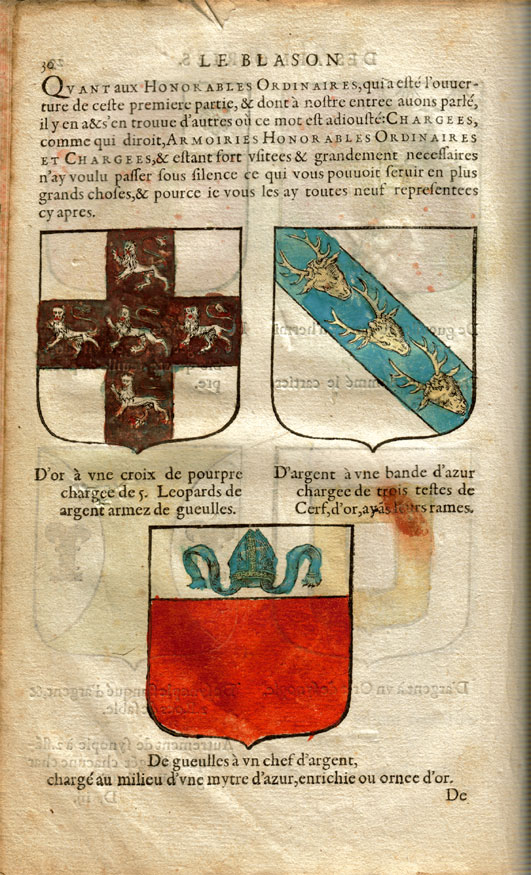 36 LE BLASON
QVANT aux HONORABLES ORDINAIRES, qui a esté l'ouuer-
ture de ceste premiere partie, & dont à nostre entree auons parlé,
il y en a & s'en trouue d'autres où ce mot est adiousté: CHARGEES,
comme qui diroit, ARMOIRIES HONORABLES ORDINAIRES
ET CHARGEES, & estant fort vsitees & grandement necessaires
n'ay voulu passer sous silence ce qui vous pouuoit seruir en plus
grands choses, & pource ie vous les ay toutes neuf representees
cy apres.
D'or à vne croix de pourpre
chargee de 5. Leopards de
argent armez de gueulles.
D'argent à vne bande d'azur
chargee de trois testes de
Cerf, d'or, ayãs leurs rames.
De gueulles à vn chef d'argent,
chargé au milieu d'vne mytre d'azur, enrichie ou ornee d'or.
De